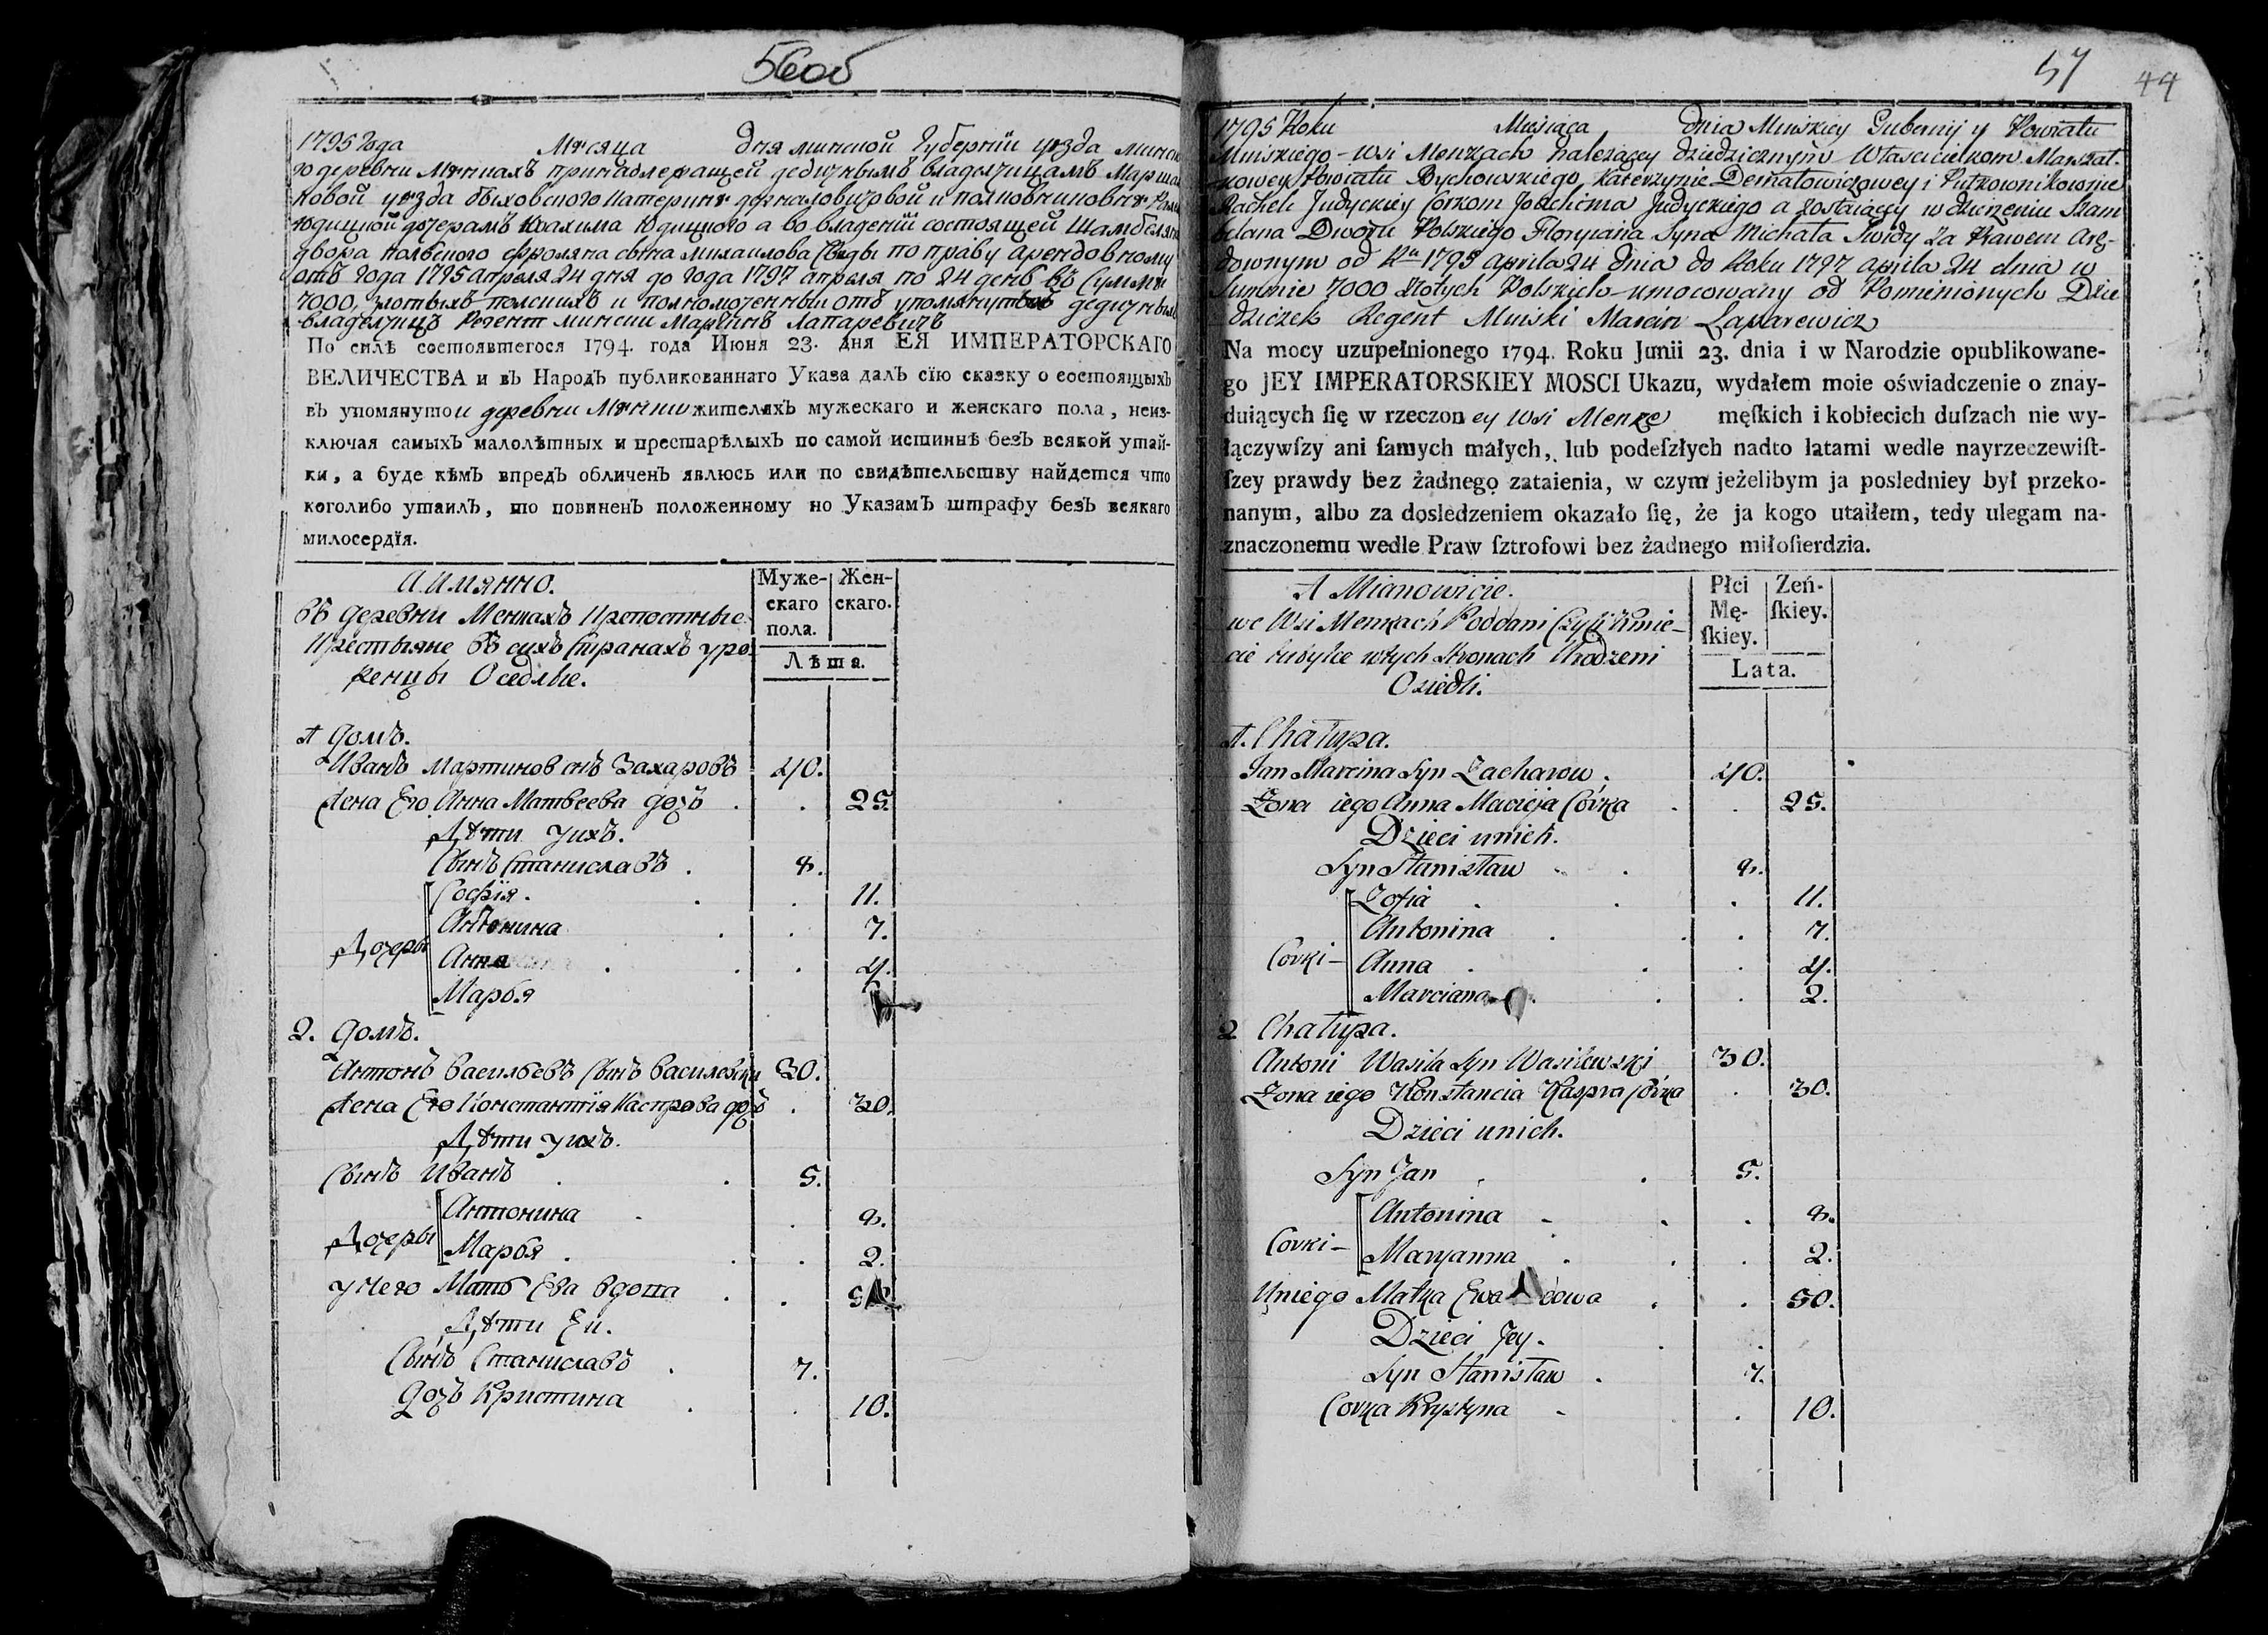 56об
1795 Года Мѣсяца дня минской Губернїи уѣзда минска
го деревни Мѣнкахъ принадлежащей дедичнымъ владелчицамъ Марша
ковой уѣзда быховского Катеринѣ дермаловичевой и полковниковнѣ
юдицкой дочерамъ Иоахима Юдицкого а во владенїи состоящей Шамбеляна
двора полского Флоряна сына михаилова Свиды по праву арендовному
отъ Года 1795 апреля 24 дня до Года 1797 апреля по 24 день въ Суммѣ
7000 злотыхъ полскихъ и полномоченный отъ упомянутыхъ дедичныхъ
владелчицъ Регент мински Марцинъ Лапаревичъ
По силѣ состоявшегося 1794. года Июня 23. дня ЕЯ ИМПЕРАТОРСКАГО
ВЕЛИЧЕСТВА и въ Народъ публикованнаго Указа далъ сїю сказку о состоящыхъ
въ упомянутои деревни Мѣнки жителяхъ мужескаго и женскаго пола, неиз-
ключая самыхъ малолѣтных и престарѣлыхъ по самой истиннѣ безъ всякой утай-
ки, а буде кѣмъ впредъ обличенъ явлюсь или по свидѣтельству найдется что
коголибо утаилъ, то повиненъ положенному по Указамъ штрафу безъ всякаго
милосердїя.
А имянно.
въ деревни Менкахъ Крепостные
Крестьяне въ сихъ Странахъ уро
женцы Оседлые.
Муже-
скаго
пола.
Жен-
скаго.
Лѣта.
А домъ.
Иванъ Мартинов снъ Захаровъ 40.
Жена Его Анна Матвеева дочъ . . 25
Дѣти у ихъ.
Сынъ Станиславъ . 8.
Софїя . . . 11.
Антонина . . 7.
Дочеры Анна . . . 4.
Марья
2. домъ.
Антонъ Васильевъ Сынъ Василевски 30.
Жена Его Константїя Каспрова дочъ . 30.
Дѣти у ихъ.
Сынъ Иванъ . . 5.
Антонина . . 8.
Дочеры Марья . . . 2.
у него Мать Ева вдова . .
Дѣти Еи.
Сынъ Станиславъ . 7.
дочъ Кристина . . 10.
57
44
1795 Roku Miesiąca dnia Minskiey Gubernij y Powiatu
Minskiego wsi Menkach należącey dziedzicznym Własicielkom Marszał-
kowey Powiatu Bychowskiego Katerzynie Dermałowiczowey i Pułkownikownie
Racheli Judyckiey Corkom Joachima Judyckiego a zostaiącey w dzierzeniu Szam
belana Dworu Polskiego Floryiana Syna Michała Swidy za Prawem Arę-
downym od Ru 1795 Aprila 24 dnia do Roku 1797 Aprila 24 dnia w
Summie 7000 złotych Polskich umocowany od Pomienionych Dzie
dziczek Regent Minski Marcin Łaparewicz
Na mocy uzupełnionego 1794. Roku Junii 23. dnia i w Narodzie opublikowane-
go JEY IMPERATORSKIEY MOSCI Ukazu, wydałem moie oświadczenie o znay-
duiących ſię w rzeczon ey Wsi Menkę męſkich i kobiecich duſzach nie wy-
łączywſzy ani ſamych małych, lub podeſzłych nadto latami wedle nayrzeczewiſt-
ſzey prawdy bez żadnego zataienia, w czym jeżelibym ja posledniey był przeko-
nanym, albo za dosledzeniem okazało ſię, że ja kogo utaiłem, tedy ulegam na-
znaczonemu wedle Praw ſztrofowi bez żadnego miłoſierdzia.
A Mianowicie.
we Wsi Menkach Poddani Czyli Kmie-
cie tubylce wtych Stronach Urodzeni
Osiedli.
Płci
Mę-
ſkiey.
Zeń-
ſkiey.
Lata.
A. Chałupa.
Jan Marcina Syn Zacharow . 40.
Żona iego Anna Macieja Córka . . 25.
Dzieci unich.
Syn Stanisław . . 8.
Zofia . . . 11.
Antonina . . . 7.
Corki – Anna . . . 4.
Marciana . . . 2.
2 Chałupa.
Antoni Wasila Syn Wasilewski 30.
Żona iego Konstancia Kaspra Córka . 30.
Dzieci unich.
Syn Jan . . 5.
Antonina . . . 8.
Corki – Maryanna . . . 2.
Uniego Matka Ewa . . 50.
Dzieci Jey.
Syn Stanisław . 7.
Corka Krystyna . . 10.